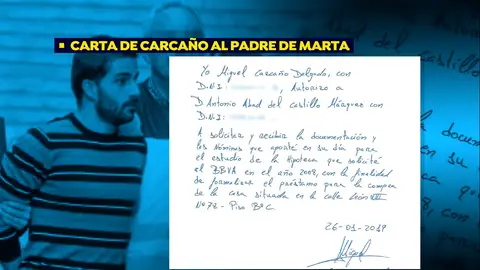 CARTA DE CARCAÑO AL PADRE DE MARTA
Yo Miguel Carcaño Delgado, con
D.N.I:        , Autorizo a
D Antonio Abad del Castillo Márquez con
D.N.I:
A solicitar y recibir la documentación y
las Nóminas que aporté en su día para
el estudio de la Hipoteca que solicité
el BBVA en el año 2008, con la finalidad
de formalizar el préstamo para la compra
de la casa situada en la calle León XIII
Nº 78 - Piso Bº C.
26-01-2019
Miguel